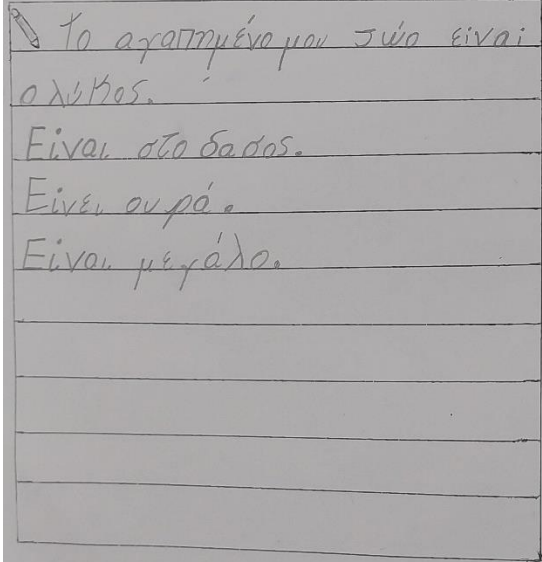 Το αγαπημένο μου ζώο είναι
ο λύκος.
Είναι στο δασος.
Είνει ουρά.
Είναι μεγάλο.